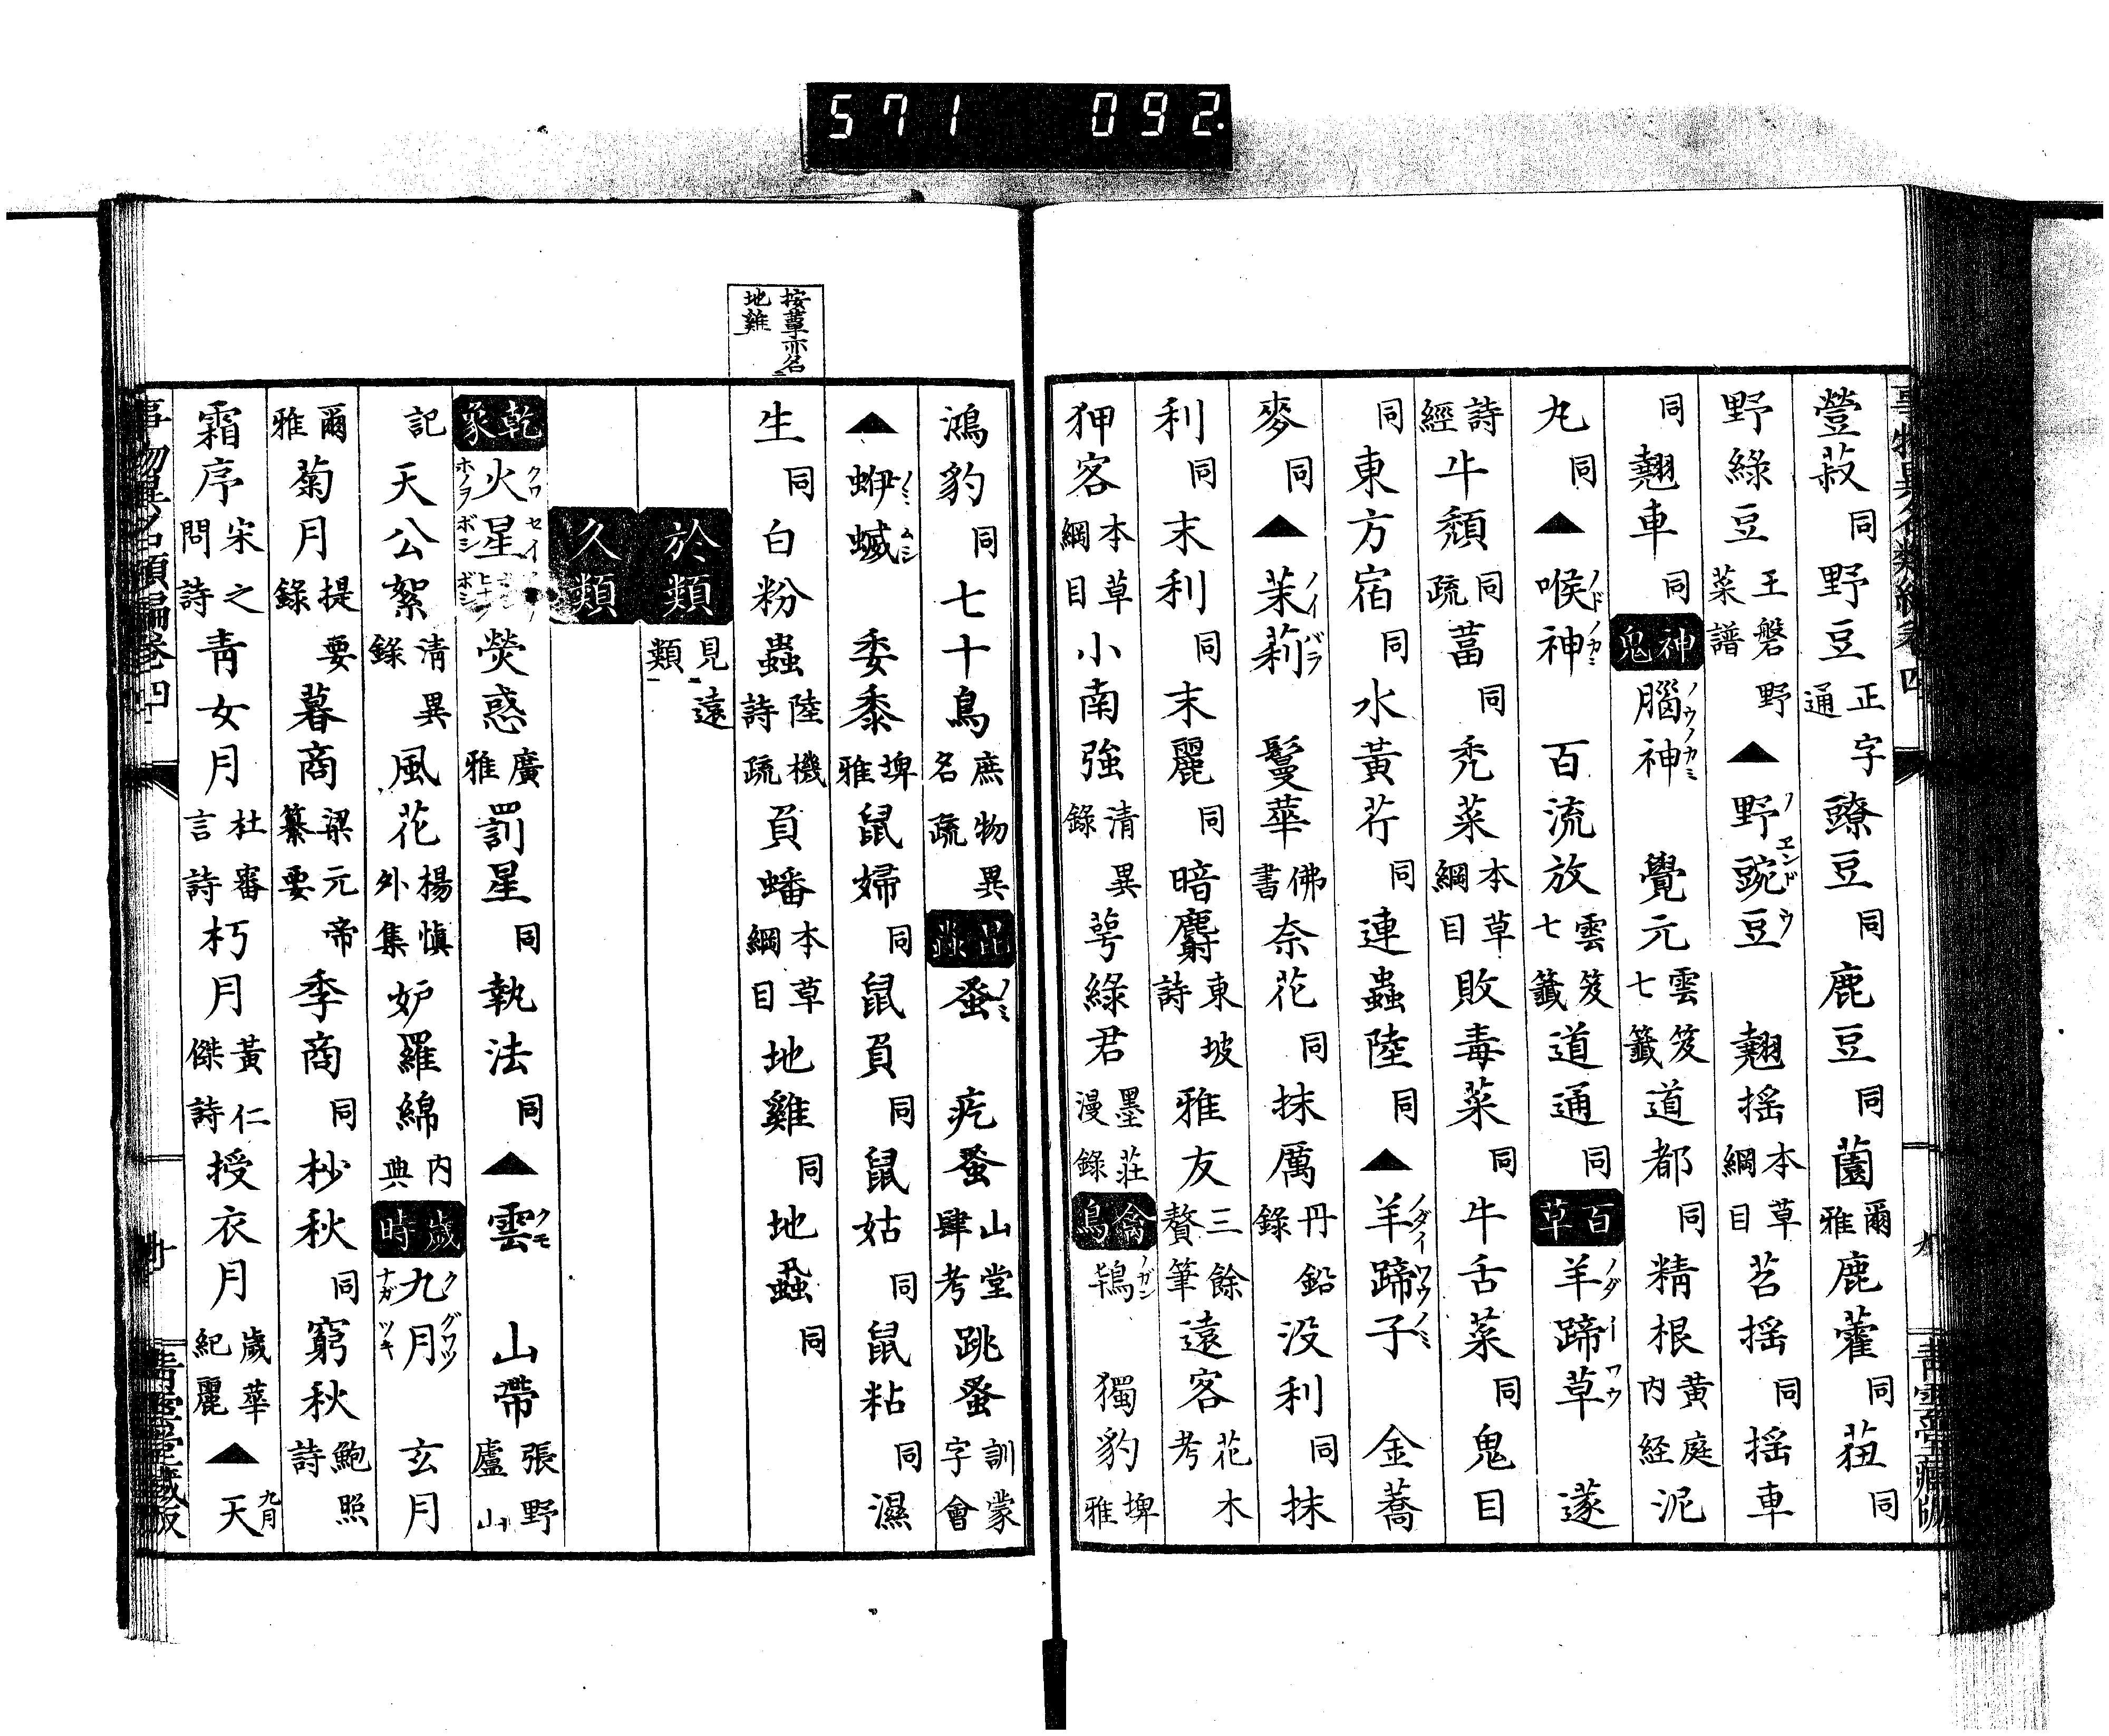 571 092.
䝁菽同野豆正字通豂豆同鹿豆同䕀爾雅鹿藿同莥同
野綠豆王磐野菜譜▲野豌豆ノヱンドウ翹搖本草綱目苕搖同搖車
同翹車同神鬼腦神ノウノカミ覺元雲笈七籤道都同精根黄庭内経泥
丸同▲喉神ノドノカミ百流放雲笈七籤道通同百草羊蹄草ノダイワウ蓫
詩經牛頽同疏蓄同禿菜本草綱目敗毒菜同牛舌菜同鬼目
同東方宿同水黄芹同連蟲陸同▲羊蹄子ノダイワウノミ金蕎
麥同▲茉莉ノイバラ鬘華佛書奈花同抹厲丹鉛錄没利同抹
利同末利同末麗同暗麝東坡詩雅友三餘贅筆遠客花木考
狎客本草綱目小南強清異錄萼綠君墨莊漫錄禽鳥鴇ノガン獨豹埤雅
鴻豹同七十鳥庶物異名疏昆蟲蚤ノミ疙蚤山堂肆考跳蚤訓蒙字會
▲蛜蝛ノミムシ委黍埤雅鼠婦同鼠負同鼠姑同鼠粘同濕
按蕈亦名地雞
生同白粉蟲陸機詩疏負蟠本草綱目地雞同地蝨同
於類見遠類
久類
乾象火星クワセイホノヲボシ熒惑廣雅罰星同執法同▲雲クモ山帶張野廬山
記天公絮清異錄風花楊慎外集妒羅綿内典歲時九月クグワツナガツキ玄月
爾雅菊月提要錄暮商梁元帝纂要季商同杪秋同窮秋鮑照詩
霜序宋之問詩青女月杜審言詩朽月黄仁傑詩授衣月歲華紀麗▲九月天
事物異名類編卷四
青雲堂藏版